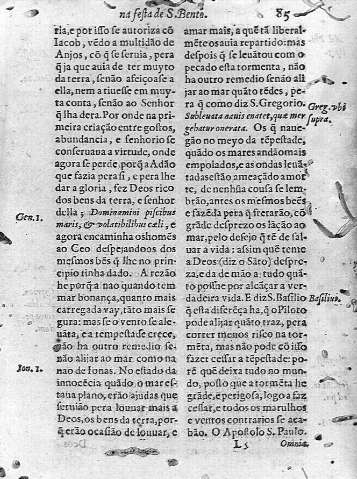 na festa de S. Bento. 85
ria, e por isso se autoriza cõ
Iacob, vẽdo a multidão de
Anjos, cõ q̃ se seruia, pera
q̃ ja que auia de ter muyto
da terra, senão afeiçoase a
ella, nem a tiuesse em muy-
ta conta, senão ao Senhor
q̃ lha dera. Por onde na
primeira criação entre gostos,
abundancia, e senhorio se
conseruaua a virtude, onde
agora se perde, porq̃ a Adão
que fazia pera si, e pera lhe
dar a gloria, fez Deos rico
dos bens da terra, e senhor
della; Dominamini piscibus
maris, & volatilibus cæli, e
agora encaminha os homẽs
ao Ceo despejandoos dos
mesmos bẽs q̃ lhe no prin-
cipio tinha dado. A rezão
he porq̃ a nao quando tem
mar bonança, quanto mais
carregada vay, tãto mais se
gura: mas se o vento se ale-
uãta, e a tempestade crece,
não ha outro remedio se-
não alijar ao mar como na
nao de Ionas. No estado da
innocẽcia quãdo o mar es-
taua plano, erão ajudas que
seruião pera louuar mais a
Deos, os bens da terra, por-
q̃ erão ocasião de louuar, e
Gen. 1.
Ion. 1.
amar mais, a quẽ tã liberal-
mẽte os auia repartido: mas
despois q̃ se leuãtou com o
pecado esta tormenta, não
ha outro remedio senão ali
jar ao mar quãto tẽdes, pe-
ra q̃ como diz S. Gregorio.
Subleuata nauis enatet, quæ mer
gebatur onerata. Os q̃ naue-
gão no meyo da tẽpestade,
quãdo os mares andão mais
empolados, e as ondas leuã
tadas estão ameaçãdo a mor
te, de nenhũa cousa se lem-
brão, antes os mesmos bẽs
e fazẽda por q̃ se tirarão, cõ
grãde desprezo os lãção ao
mar, pelo desejo q̃ tẽ de sal-
uar a vida: assim quẽ teme
a Deos (diz o Sãto) despre-
za, e dà de mão a tudo quã-
to possue por alcãçar a ver-
dadeira vida. E diz S. Basilio
q̃ esta diferẽça ha, q̃ o Piloto
pode alijar quãto traz, pera
correr menos risco na tor-
mẽta, mas não pode cõ isso
fazer cessar a tẽpestade: po-
rẽ quẽ deixa tudo no mun-
do, posto que a tormẽta he
grãde, e perigosa, logo a faz
cessar, e todos os marulhos
e ventos contrarios se aca-
bão. O Apostolo S. Paulo.
Greg. vbi
supra.
Basilius.
L 5 Omnia